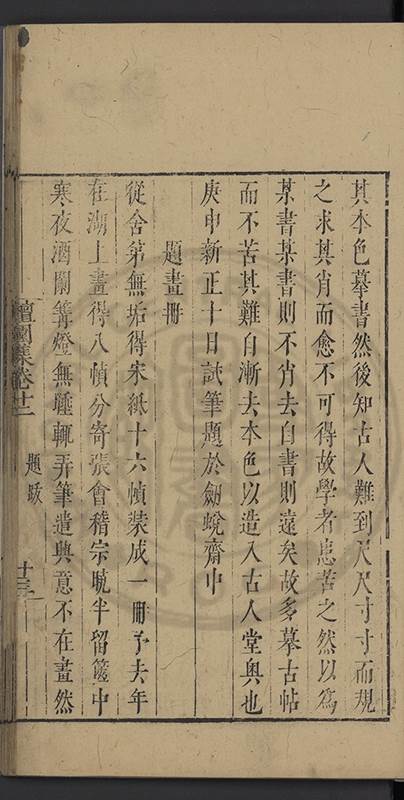 其本色摹書然後知古人難到尺尺寸寸而規
之求其肖而愈不可得故學者患苦之然以爲
某書某書則不肖去自書則遠矣故多摹古帖
而不苦其難自漸去本色以造入古人堂奧也
庚申新正十日試筆題於劒蛻齋中
題畫冊
從舍弟無垢得宋紙十六幀装成一冊予去年
在湖上畫得八幀分寄張會稽宗曉半留篋中
寒夜酒闌篝燈無睡輒弄筆遣興意不在畫然
檀園集卷十二
題跋
十三